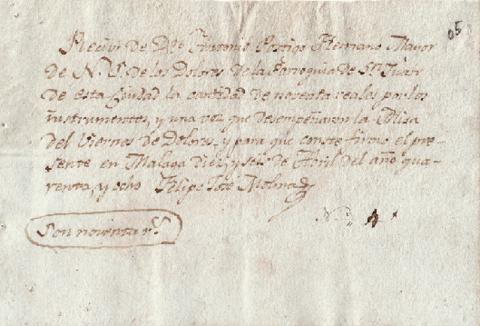 Recivi de Dn Antonio Postigo Hermano Mayor
de N. S. de los Dolores de la Parroquia de Sn Juan
de esta Ciudad la cantidad de noventa reales por los
instrumentos, y una voz que desempeñaron la Misa
del Viernes de Dolores, y para que conste firmo el pre-
sente en Malaga diez y seis de Abril del año qua-
renta, y ocho Felipe José Molina
Son noventa rs